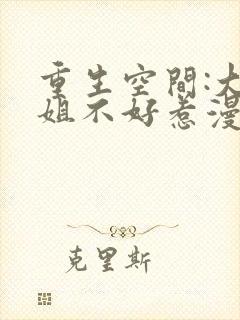 重生空間:大
姐不好惹漫
克里斯